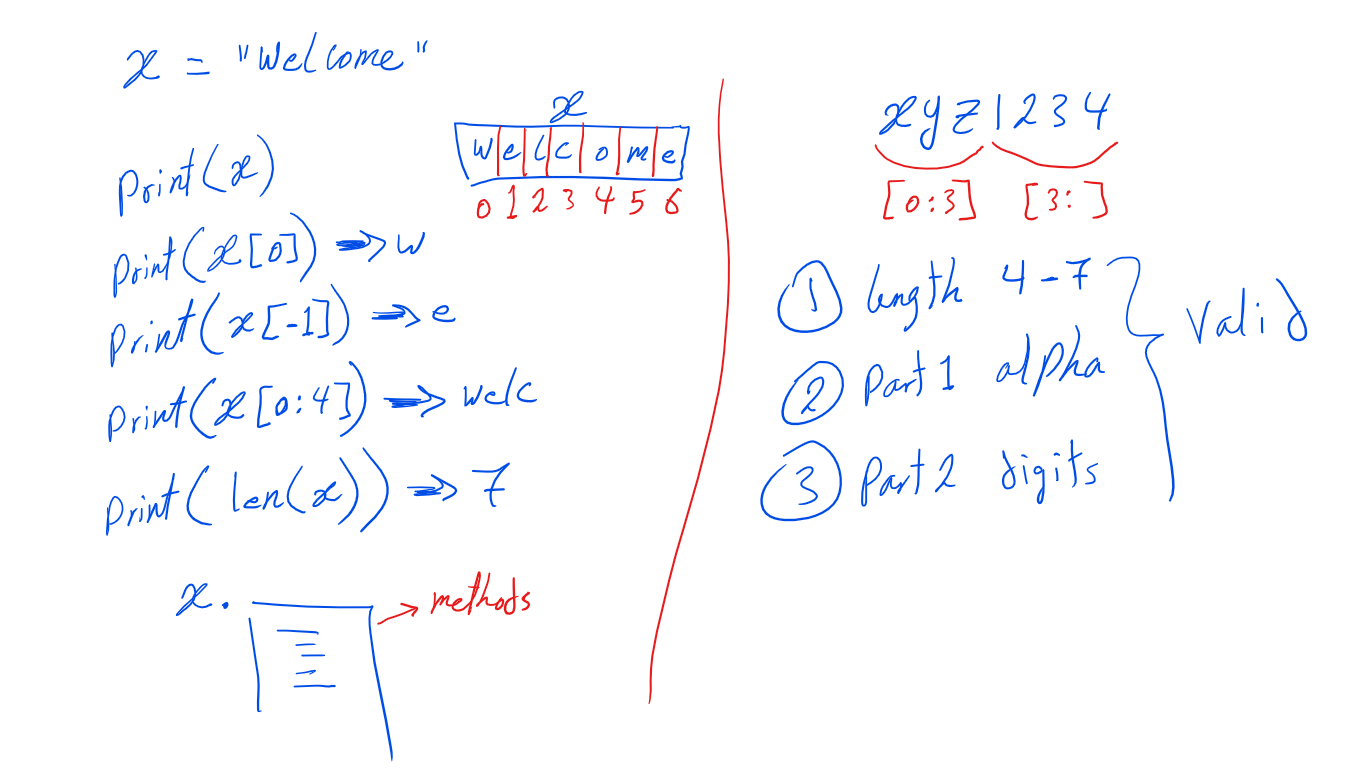 x = "Welcome"
x
w e l c o m e
0 1 2 3 4 5 6
Print(x)
Print(x[0]) => w
Print(x[-1]) => e
Print(x[0:4]) => welc
Print(len(x)) => 7
x.
methods
xyz1234
[0:3] [3: ]
1 length 4-7
2 Part1 alpha
3 Part2 digits
Valid